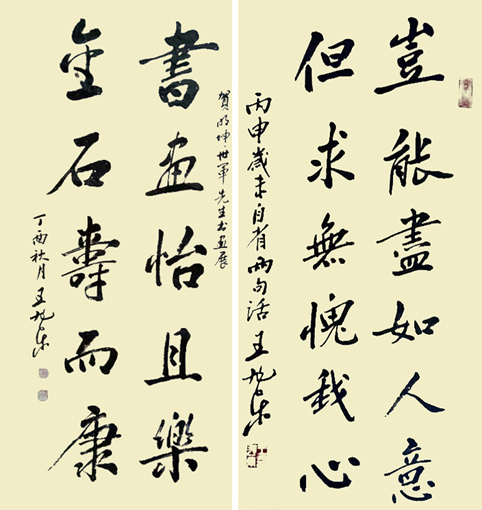 豈能盡如人意
但求無愧我心
丙申歲末自省兩句話 王旭东
賀明坤·世軍先生书画展
書畫怡且樂
金石壽而康
丁酉秋月 王旭东